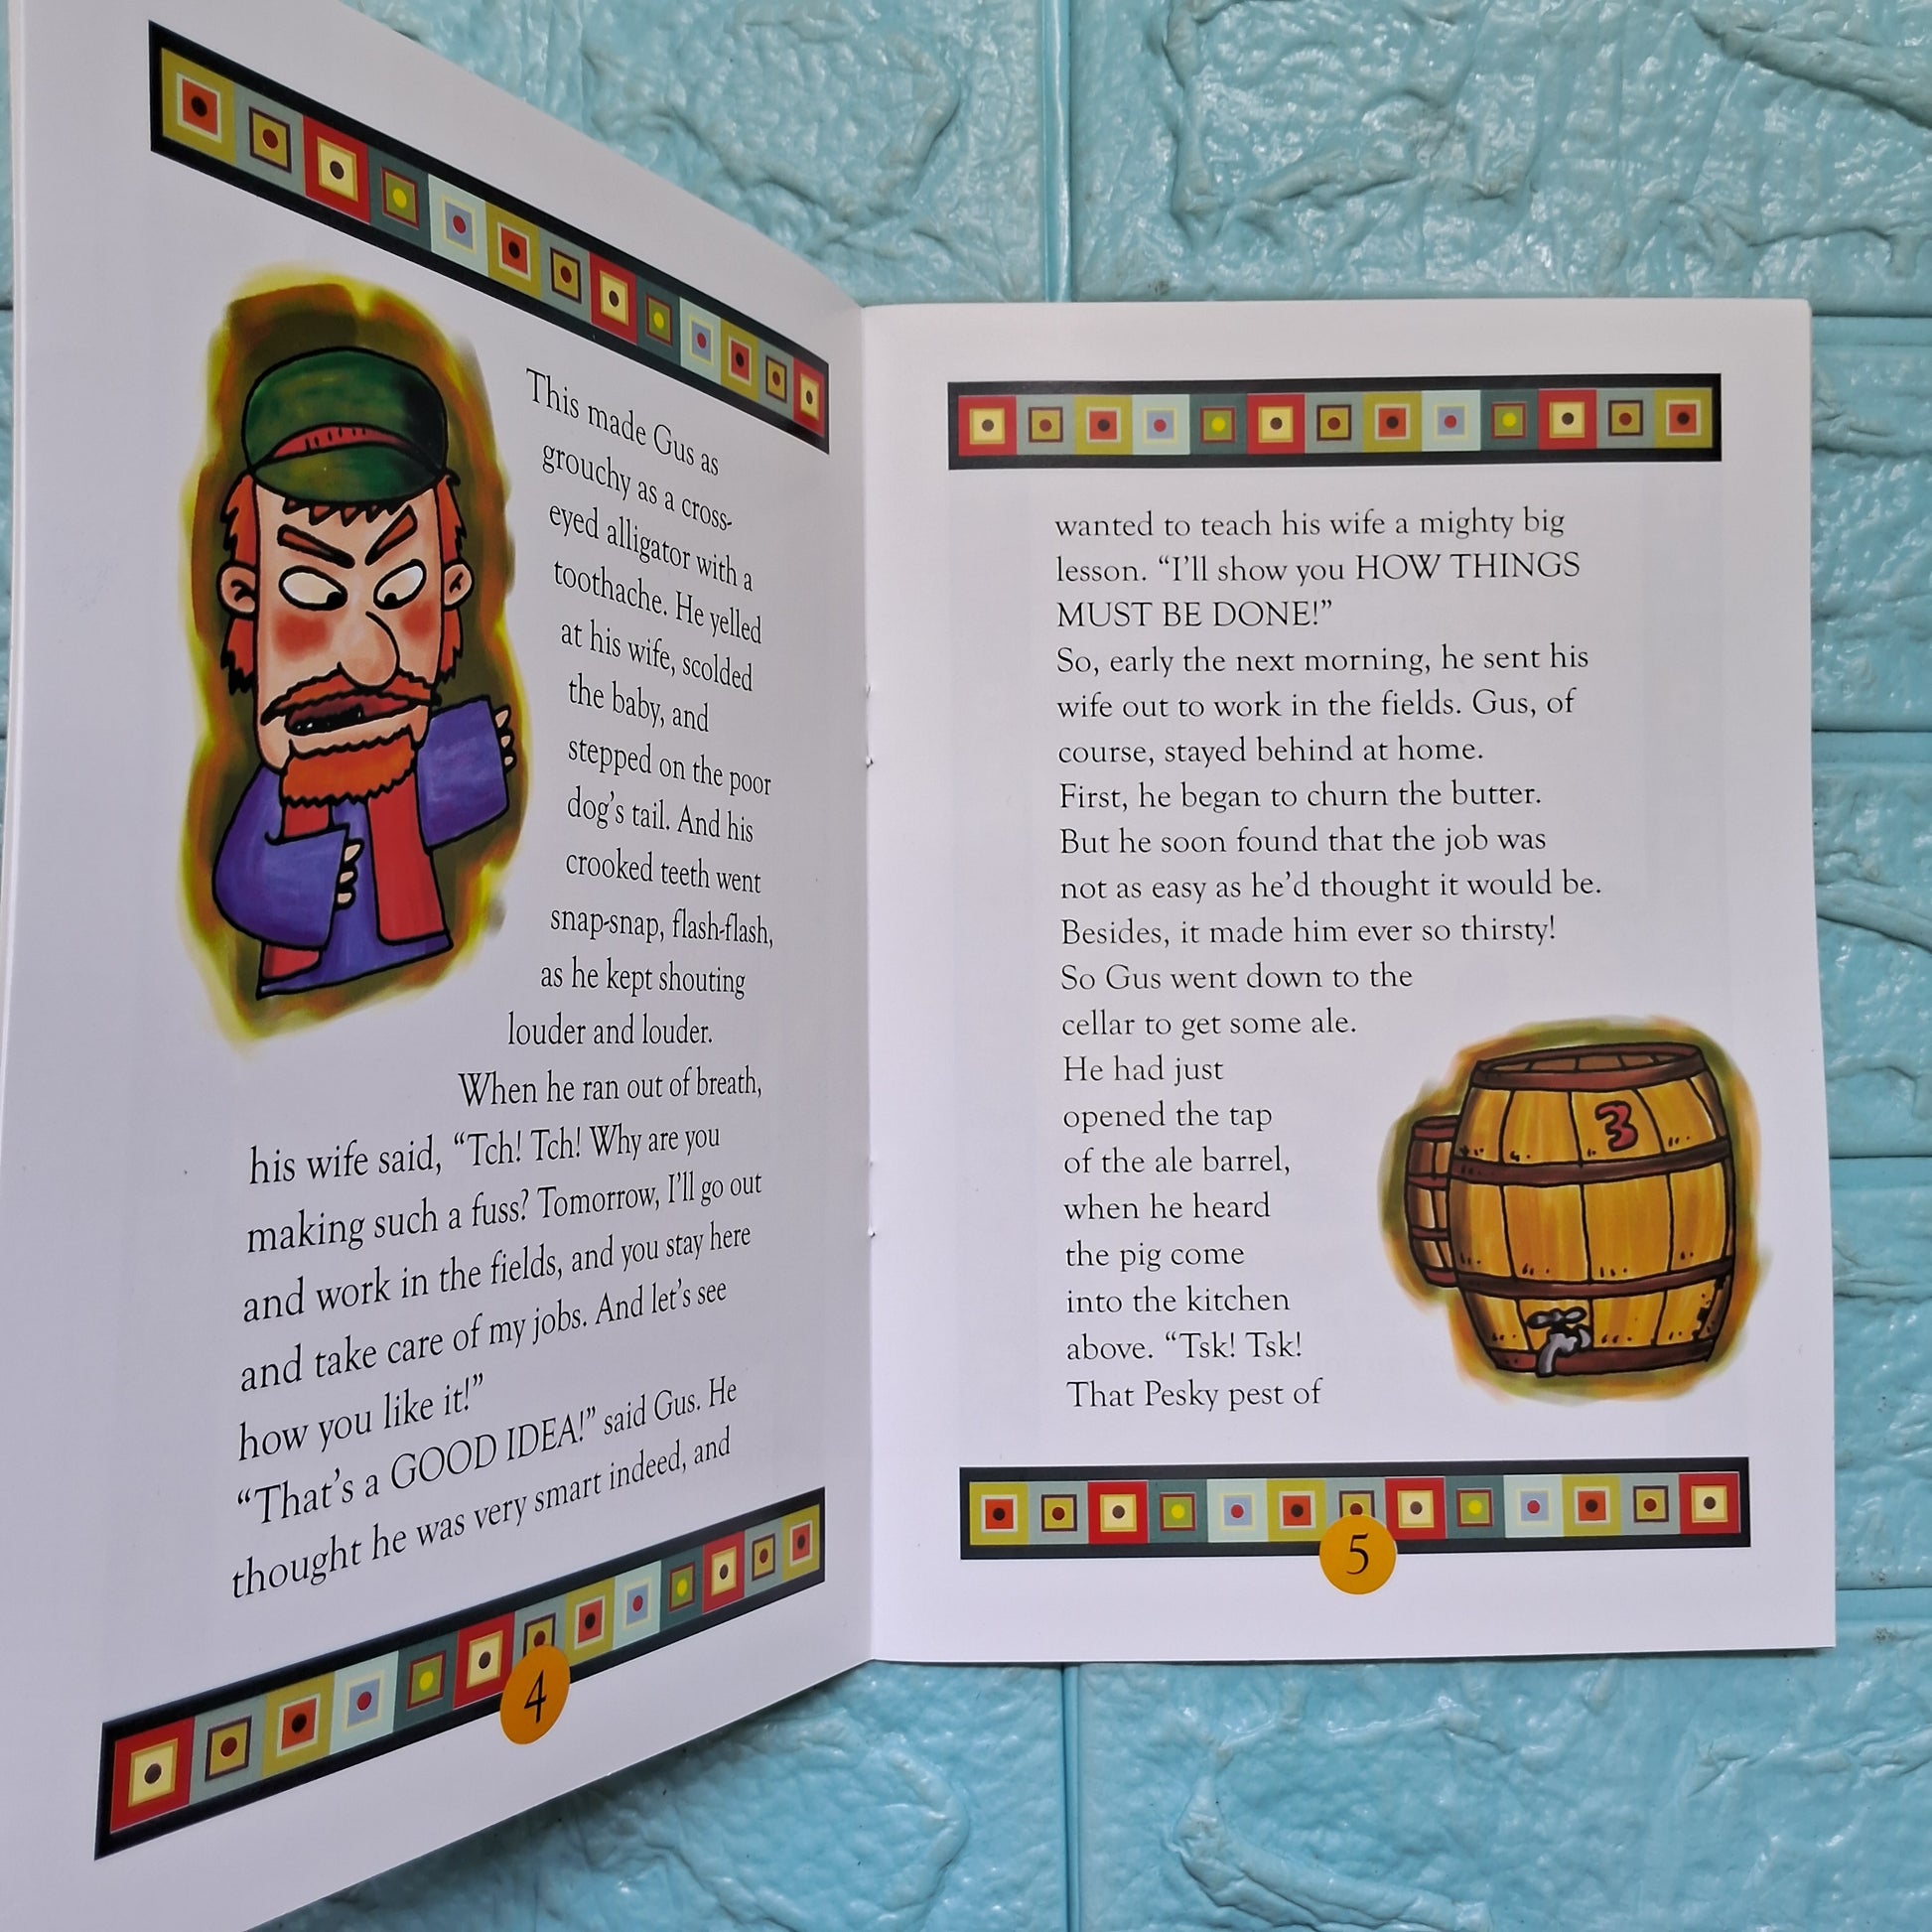 This made Gus as
grouchy as a cross-
eyed alligator with a
toothache. He yelled
at his wife, scolded
the baby, and
stepped on the poor
dog's tail. And his
crooked teeth went
snap-snap, flash-flash,
as he kept shouting
louder and louder.
When he ran out of breath,
his wife said, “Tch! Tch! Why are you
making such a fuss? Tomorrow, I'll go out
and work in the fields, and you stay here
and take care of my jobs. And let's see
how you like it!”
“That's a GOOD IDEA!” said Gus. He
thought he was very smart indeed, and
4
wanted to teach his wife a mighty big
lesson. “I'll show you HOW THINGS
MUST BE DONE!”
So, early the next morning, he sent his
wife out to work in the fields. Gus, of
course, stayed behind at home.
First, he began to churn the butter.
But he soon found that the job was
not as easy as he'd thought it would be.
Besides, it made him ever so thirsty!
So Gus went down to the
cellar to get some ale.
He had just
opened the tap
of the ale barrel,
when he heard
the pig come
into the kitchen
above. “Tsk! Tsk!
That Pesky pest of
3
5